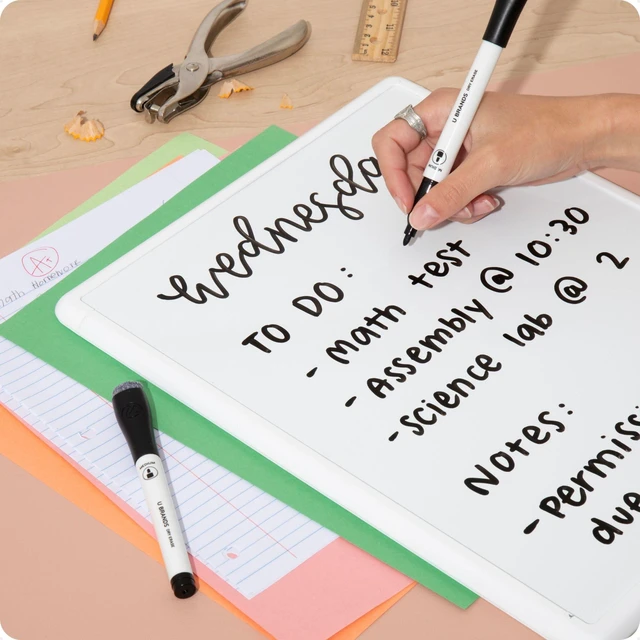 wednesda
TO DO:
- Math test
- Assembly @ 10:30
- science lab @ 2
Notes:
- Permiss
due
A+
Math Homework
U BRANDS DRY ERASE
U BRANDS DRY ERASE